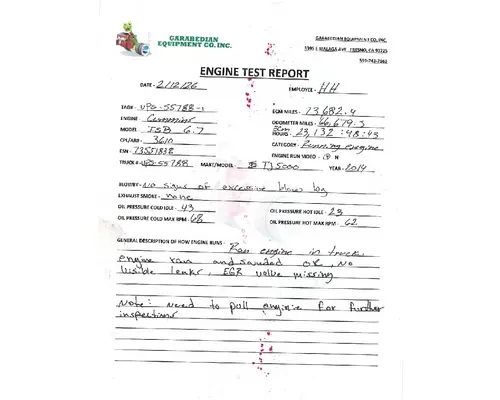 GARABEDIAN
EQUIPMENT CO. INC.
GARABEDIAN EQUIPMENT CO, INC.
MALAGA AVE, FRESNO, CA 93725
ENGINE TEST REPORT
DATE - 2/12/26
EMPLOYEE - HH
TAG# - UPS-5578B-1
ECM MILES - 73,682.4
ENGINE - Cummins
ODOMETER MILES - 66,679.3
MODEL - ISB 6.7
ECM HOURS - 23,132:48:43
CPL/AR# - 3610
CATEGORY - Running engine
ESN - 73551838
ENGINE RUN VIDEO - Y N
TRUCK # - UPS-5578B
MAKE/MODEL - TJ5000
YEAR - 2014
BLOWBY - No signs of excessive blow by
EXHAUST SMOKE - none
OIL PRESSURE COLD IDLE - 43
OIL PRESSURE HOT IDLE - 23
OIL PRESSURE COLD MAX RPM - 68
OIL PRESSURE HOT MAX RPM - 62
GENERAL DESCRIPTION OF HOW ENGINE RUNS - Ran engine in truck,
engine ran and sounded OK, No
visible leaks, EGR valve missing
Note: need to pull engine for further
inspections